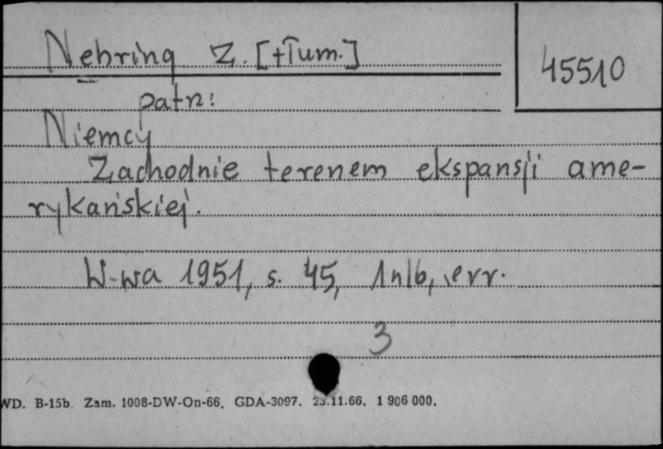 Nehring Z. [tłum.]
45510
patrz:
Niemcy
Zachodnie terenem ekspansji ame-
rykańskiej.
W-wa 1951, s. 45, 1 nlb, err.
3
WD. B-15b. Zam. 1008-DW-On-66. GDA-3097. 23.11.66. 1 906 000.